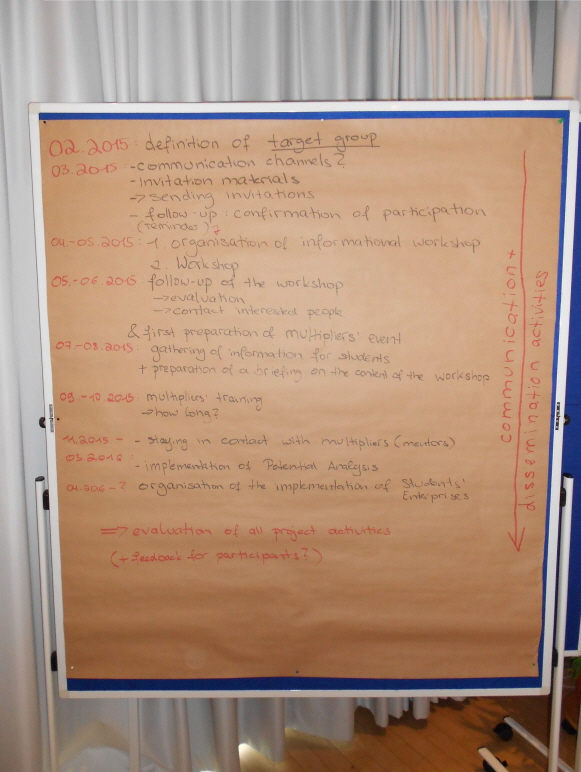 02.2015: definition of target group
03.2015: - communication channels?
- Invitation materials
-> sending invitations
- follow-up: confirmation of participation
(reminder)?
04.-05.2015: 1. organisation of informational workshop
2. Workshop
05.-06.2015 follow-up of the workshop
-> evaluation
-> contact interested people
& first preparation of multipliers' event
07.-08.2015: gathering of information for students
+ preparation of a briefing on the content of the workshop
09.-10 2015 multipliers' training
-> how long?
11.2015 - - staying in contact with multipliers (mentors)
03.2016:
- implementation of Potential Analysis
- ? organisation of the implementation of Students'
Enterprises
=> evaluation of all project activities
(+ feedback for participants?)
communication +
dissemination activities